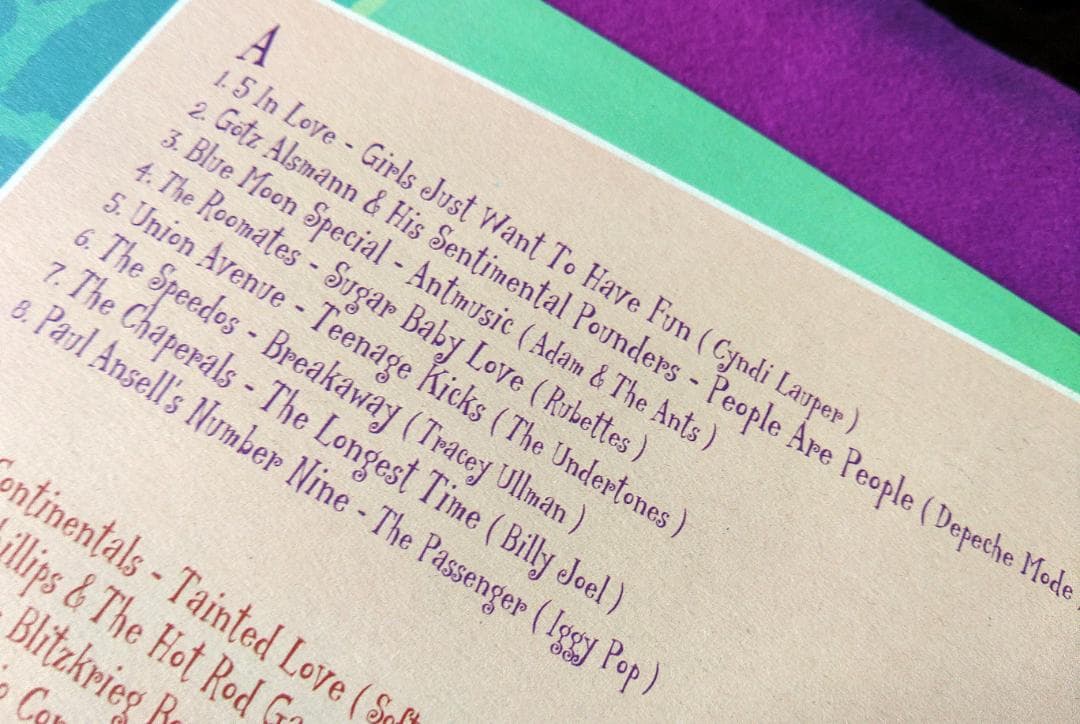 A
1. 5 In Love - Girls Just Want To Have Fun ( Cyndi Lauper )
2. Götz Alsmann & His Sentimental Pounders - People Are People ( Depeche Mode
3. Blue Moon Special - Antmusic ( Adam & The Ants )
4. The Roomates - Sugar Baby Love ( Rubettes )
5. Union Avenue - Teenage Kicks ( The Undertones )
6. The Speedos - Breakaway ( Tracey Ullman )
7. The Chaperals - The Longest Time ( Billy Joel )
8. Paul Ansell's Number Nine - The Passenger ( Iggy Pop )
Continentals - Tainted Love (
& The Hot Rod
Blitzkrieg